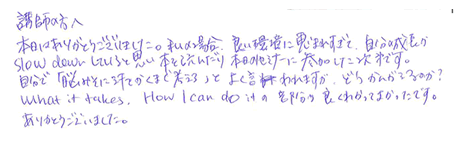 講師の方へ
本日はありがとうございました。私の場合、良い環境に恵まれすぎて、自分の成長が
slow down していると思い 本を読んだり 本日のセミナーに参加した次第です。
自分で「脳みそに汗かくまで考える」とよく言われますが、どうかんがえるのか?
What it takes, How I can do it の部分が良くわかってよかったです。
ありがとうございました。